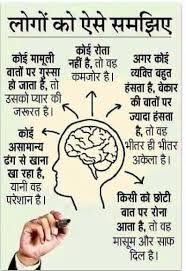 लोगों को ऐसे समझिए
कोई मामूली
बातों पर गुस्सा
हो जाता है, तो
उसको प्यार की
जरूरत है।
कोई रोता
नहीं है, तो वह
कमजोर है।
अगर कोई
व्यक्ति बहुत
हंसता है, बेकार
की बातों पर
ज्यादा हंसता
है, तो वह
भीतर ही भीतर
अकेला है।
कोई
असामान्य
ढंग से खाना
खा रहा है,
यानी वह
परेशान है।
किसी को छोटी
बात पर रोना
आता है, तो वह
मासूम और साफ
दिल है।